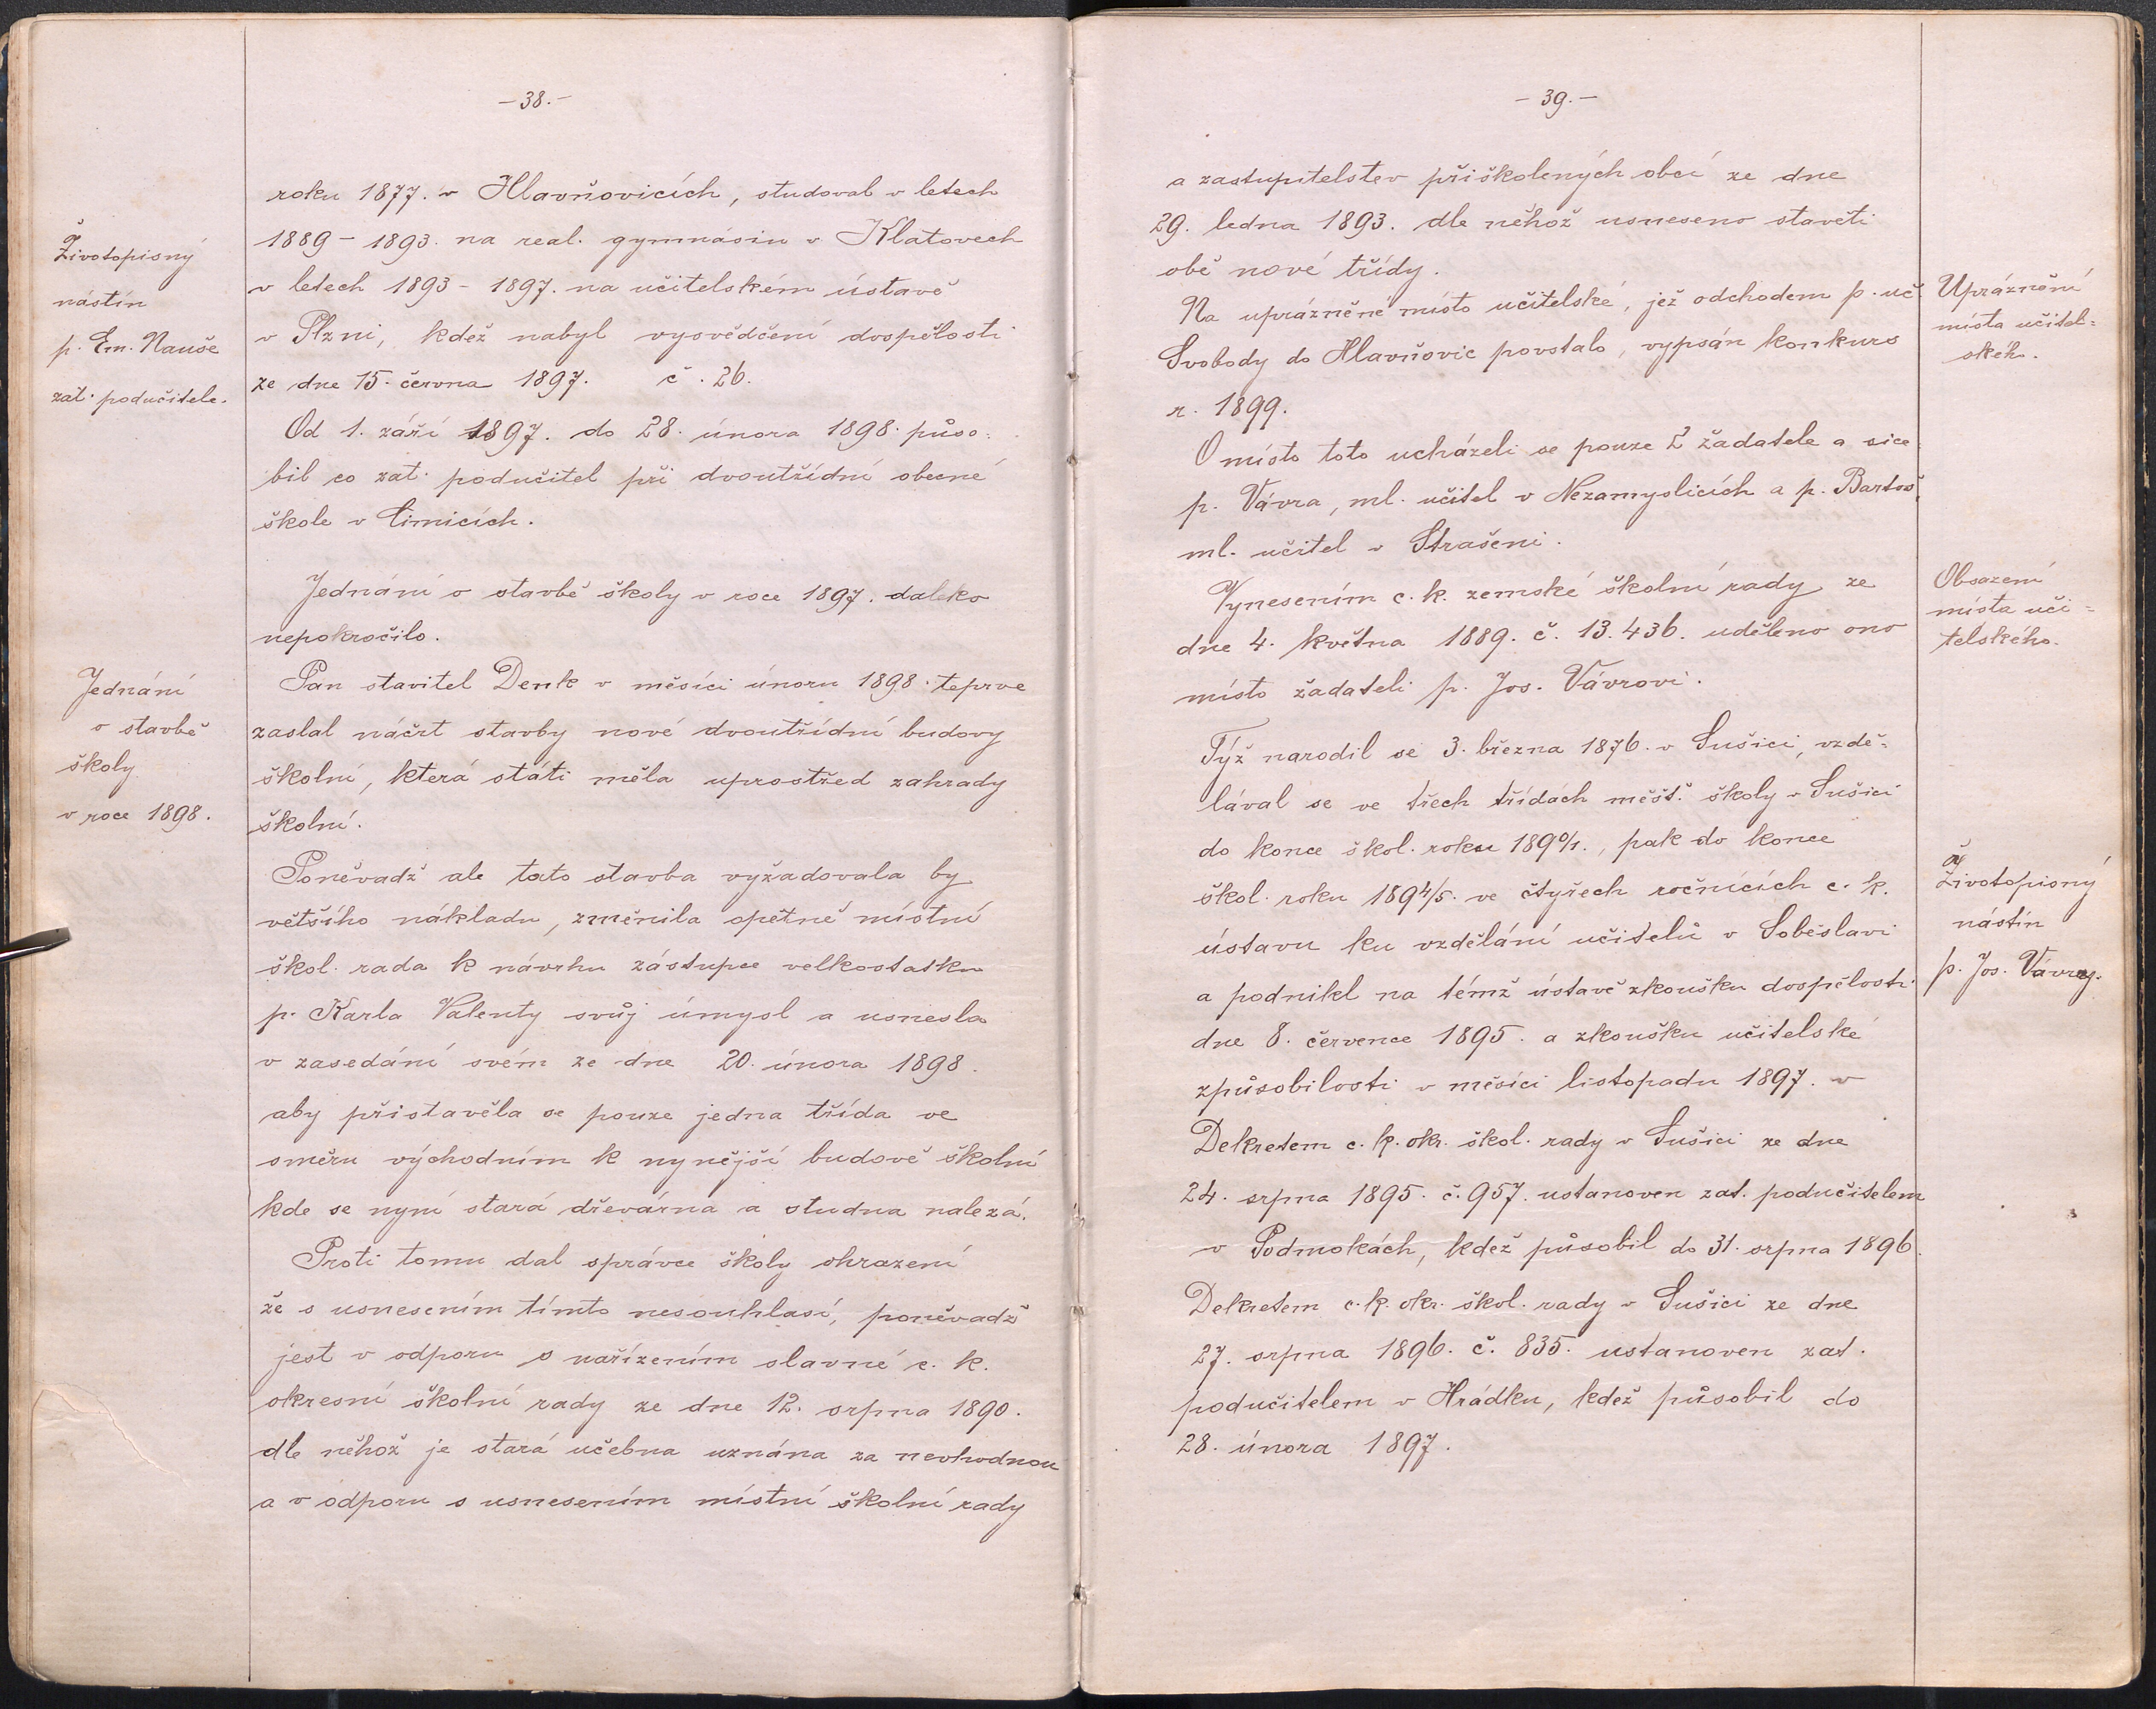 - 38. -
Životopisný
nástin
p. Em. Nauše
zat. podučitele.
roku 1877. v Hlavňovicích, studoval v letech
1889 - 1893. na real. gymnásiu v Klatovech
v letech 1893 - 1897. na učitelském ústavě
v Plzni, kdež nabyl vysvědčení dospělosti
ze dne 15. června 1897. č. 26.
Od 1. září 1897. do 28. února 1898. půso-
bil co zat. podučitel při dvoutřídní obecné
škole v Čimicích.
Jednání o stavbě školy v roce 1897. daleko
nepokročilo.
Jednání
o stavbě
školy
v roce 1898.
Pan stavitel Denk v měsíci únoru 1898. teprve
zaslal náčrt stavby nové dvoutřídní budovy
školní, která státi měla uprostřed zahrady
školní.
Poněvadž ale tato stavba vyžadovala by
většího nákladu, změnila opětně místní
škol. rada k návrhu zástupce velkostatku
p. Karla Valenty svůj úmysl a usnesla
v zasedání svém ze dne 20. února 1898.
aby přistavěla se pouze jedna třída ve
směru východním k nynější budově školní
kde se nyní stará dřevárna a studna nalezá.
Proti tomu dal správce školy ohrazení
že s usnesením tímto nesouhlasí, poněvadž
jest v odporu s nařízením slavné c. k.
okresní školní rady ze dne 12. srpna 1890.
dle něhož je stará učebna uznána za nevhodnou
a v odporu s usnesením místní školní rady
- 39. -
a zastupitelstev přiškolených obcí ze dne
29. ledna 1893. dle něhož usneseno stavěti
obě nové třídy.
Na uprázněné místo učitelské, jež odchodem p. uč.
Svobody do Hlavňovic povstalo, vypsán konkurs
r. 1899.
Upráznění
místa učitel=
ského.
O místo toto ucházeli se pouze 2 žadatele a sice
p. Vávra, ml. učitel v Nezamyslicích a p. Bartoš,
ml. učitel v Strašeni.
Vynesením c. k. zemské školní rady ze
dne 4. května 1889. č. 13.436. uděleno ono
místo žadateli p. Jos. Vávrovi.
Obsazení
místa uči=
telského.
Týž narodil se 3. března 1876. v Sušici, vzdě-
lával se ve třech třídách měšť. školy v Sušici
do konce škol. roku 1890/1., pak do konce
škol. roku 1894/5. ve čtyřech ročnících c. k.
ústavu ku vzdělání učitelů v Soběslavi
a podnikl na témž ústavě zkoušku dospělosti
dne 8. července 1895. a zkoušku učitelské
způsobilosti v měsíci listopadu 1897. v
Životopisný
nástin
p. Jos. Vávry.
Dekretem c. k. okr. škol. rady v Sušici ze dne
24. srpna 1895. č. 957. ustanoven zat. podučitelem
v Podmokách, kdež působil do 31. srpna 1896.
Dekretem c. k. okr. škol. rady v Sušici ze dne
27. srpna 1896. č. 835. ustanoven zat.
podučitelem v Hrádku, kdež působil do
28. února 1897.